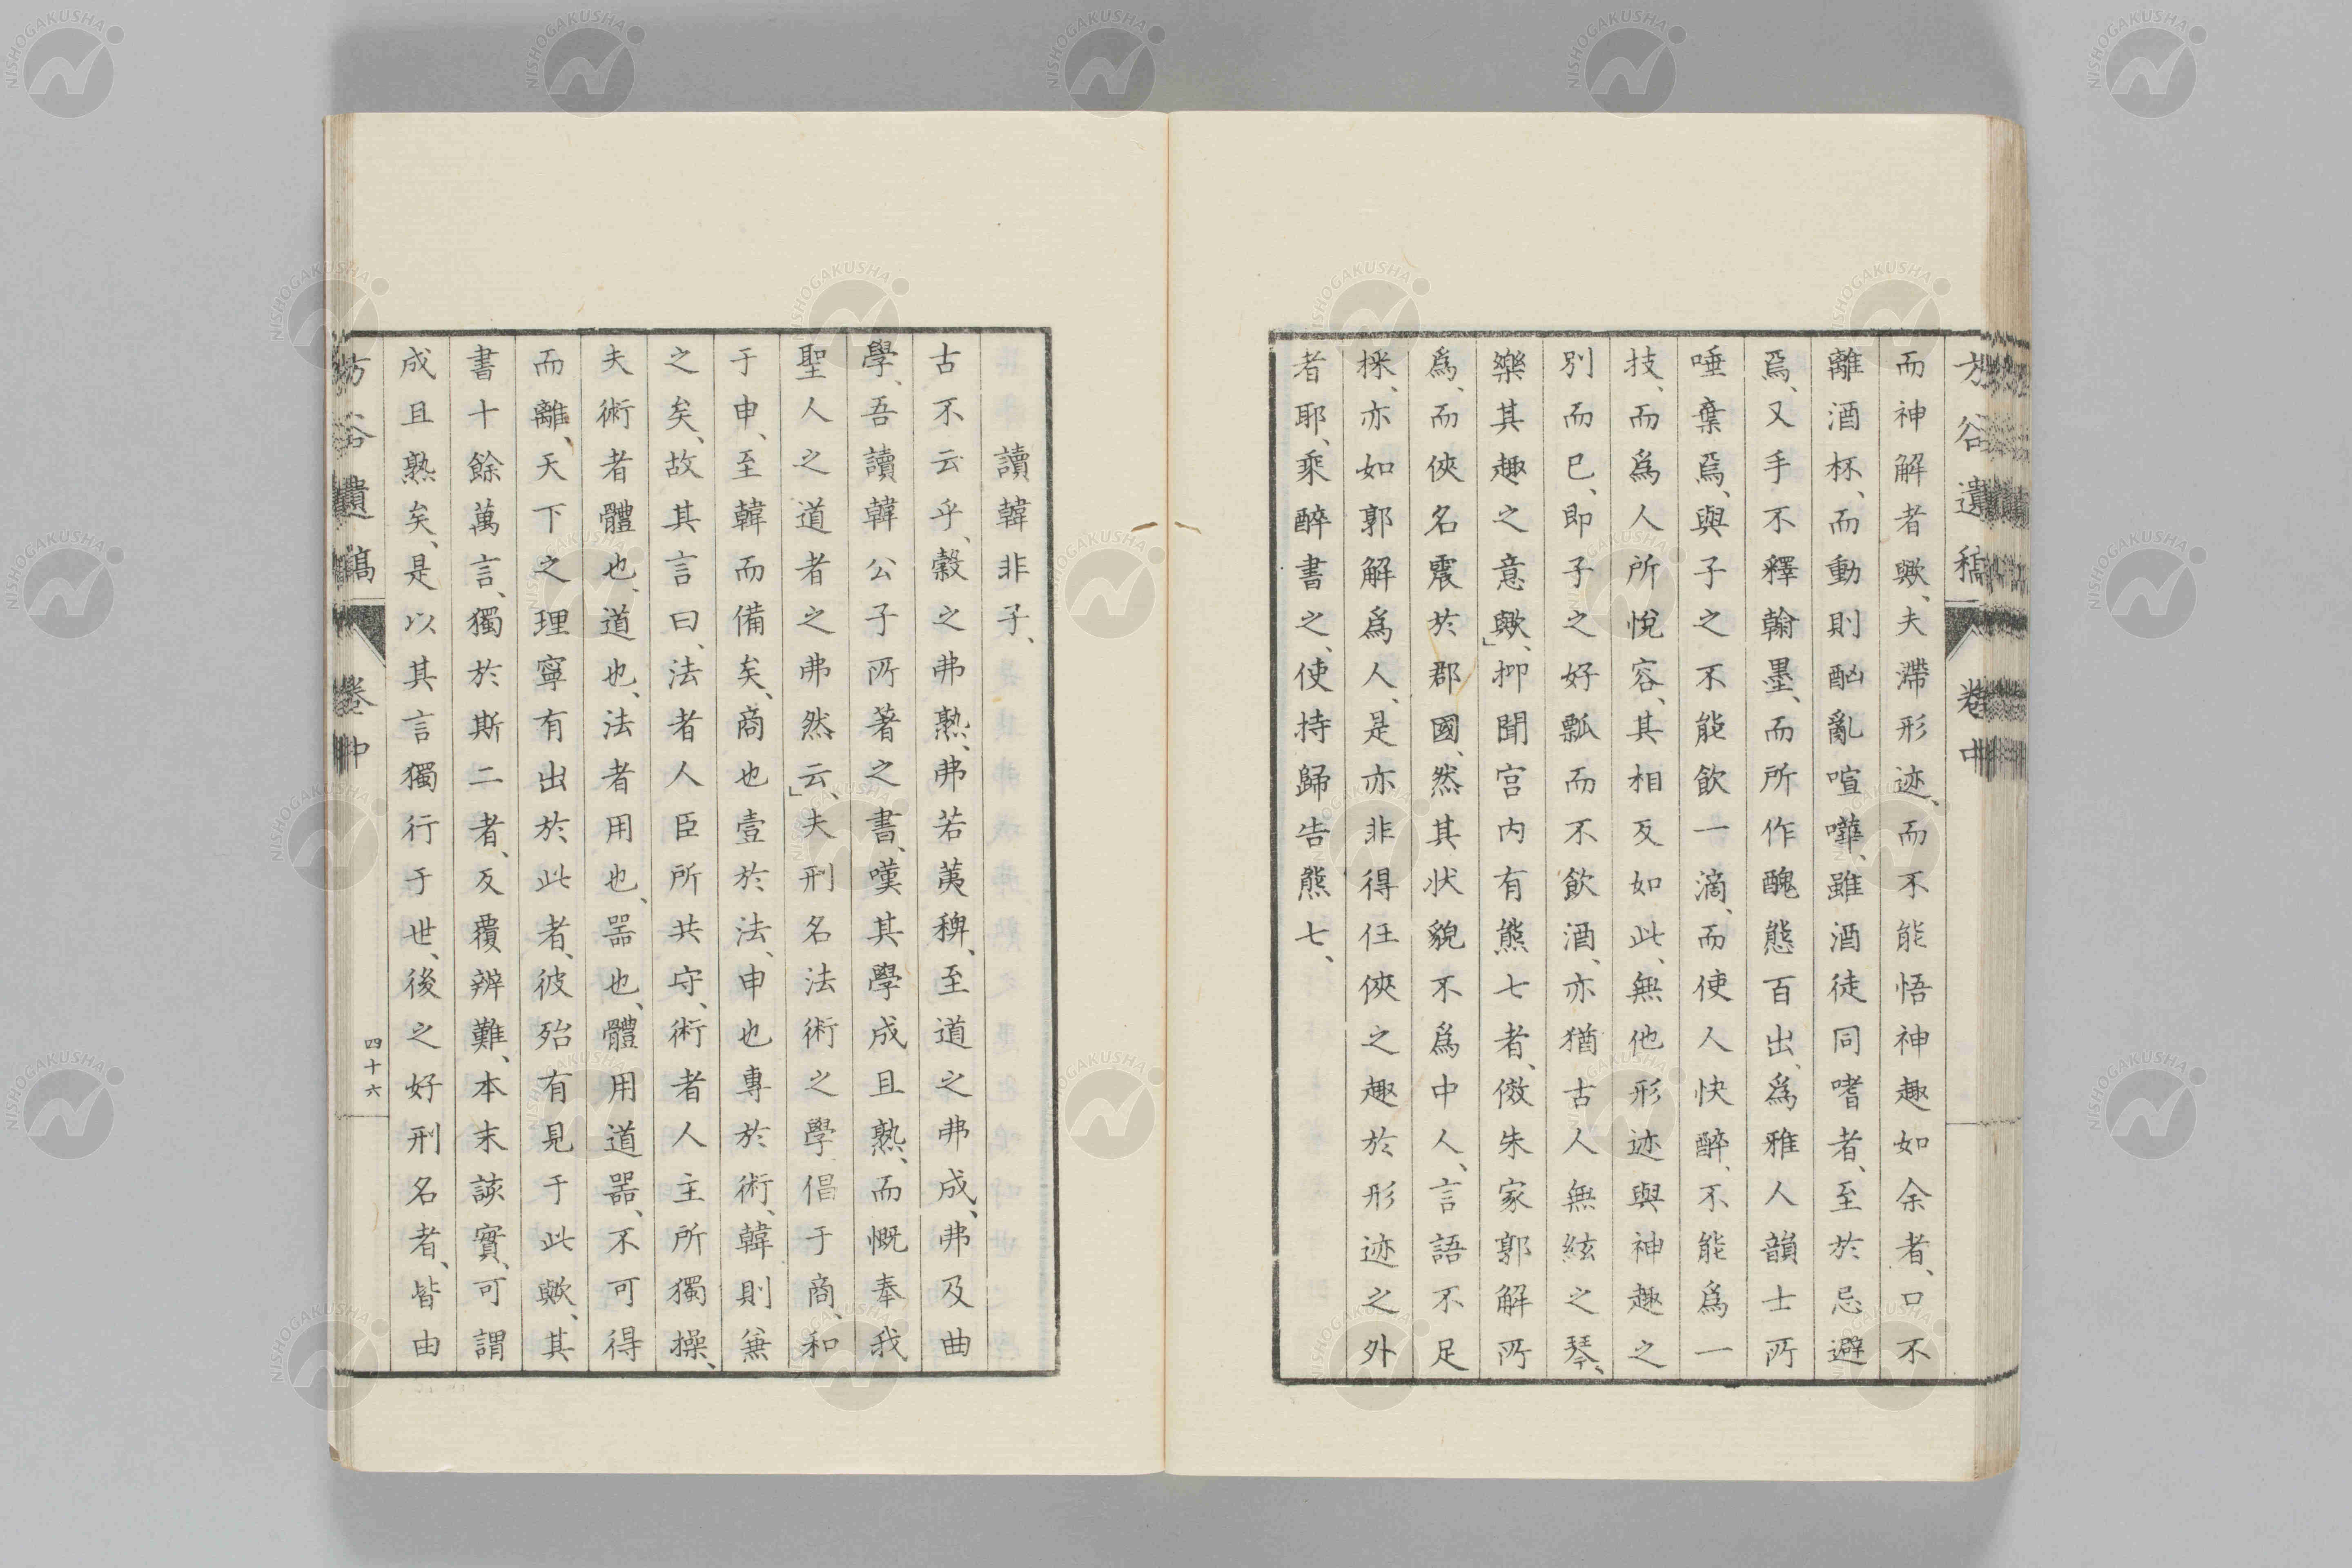 方谷遺稿 卷中
而神解者歟、夫滯形迹、而不能悟神趣如余者、口不
離酒杯、而動則酗亂喧嘩、雖酒徒同嗜者、至於忌避
焉、又手不釋翰墨、而所作醜態百出、爲雅人韻士所
唾棄焉、與子之不能飲一滴、而使人快醉、不能爲一
技、而爲人所悅容、其相反如此、無他形迹與神趣之
別而已、即子之好瓢而不飲酒、亦猶古人無絃之琴、
樂其趣之意歟」、抑聞宮内有熊七者、傚朱家郭解所
爲、而俠名震於郡國、然其狀貌不爲中人、言語不足
採、亦如郭解爲人、是亦非得任俠之趣於形迹之外
者耶、乘醉書之、使持歸告熊七、
讀韓非子、
古不云乎、穀之弗熟、弗若荑稗、至道之弗成、弗及曲
學、吾讀韓公子所著之書、嘆其學成且熟、而慨奉我
聖人之道者之弗然云」、夫刑名法術之學、倡于商、和
于申、至韓而備矣、商也壹於法、申也專於術、韓則兼
之矣、故其言曰、法者人臣所共守、術者人主所獨操、
夫術者體也、道也、法者用也、器也、體用道器、不可得
而離、天下之理寧有出於此者、彼殆有見于此歟、其
書十餘萬言、獨於斯二者、反覆辨難、本末該實、可謂
成且熟矣、是以其言獨行于世、後之好刑名者、皆由
方谷遺稿 卷中 四十六
NISHOGAKUSHA